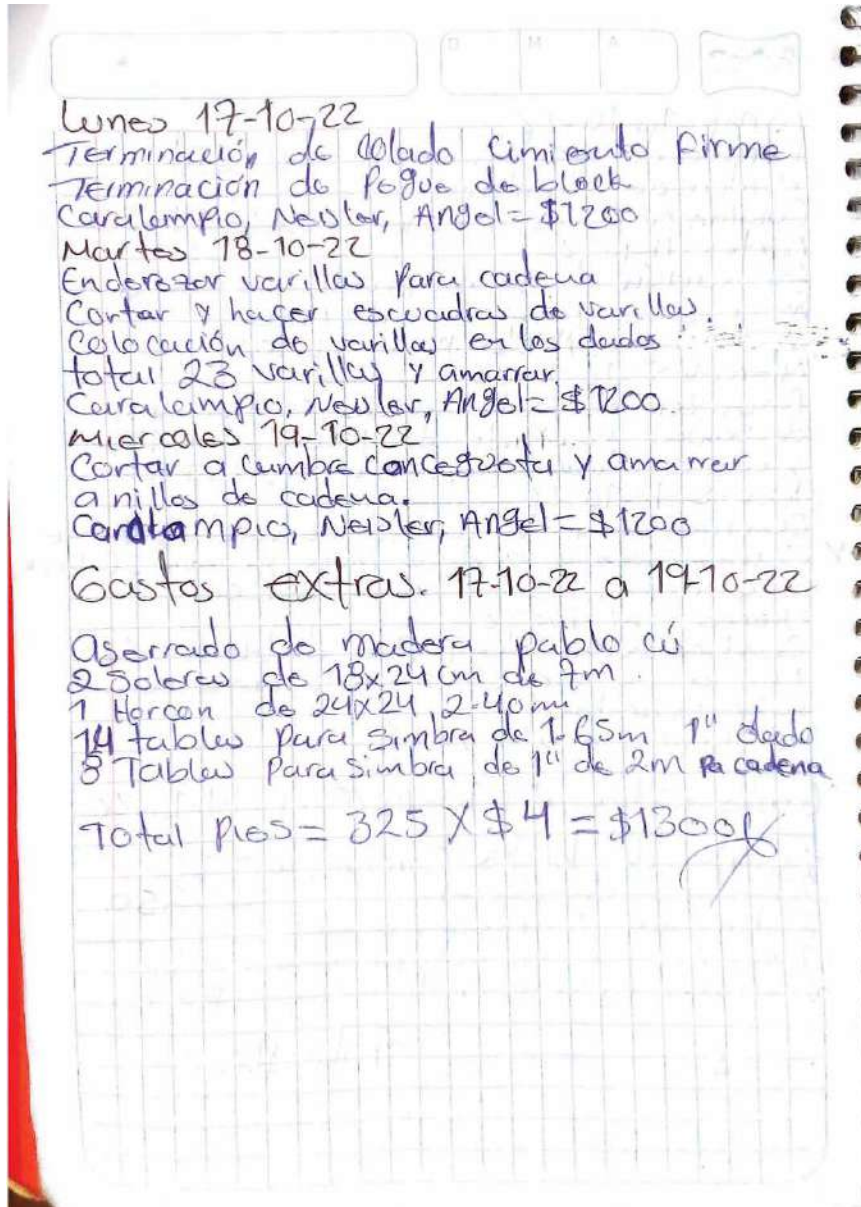 D M A
Lunes 17-10-22
Terminación de Colado Cimiento Firme
Terminación de Pegue de block
Caralampio, Neisler, Angel = $1200
Martes 18-10-22
Enderezar varillas Para cadena
Cortar y hacer escuadras de varillas.
Colocación de varillas en los dados
total 23 varillas y amarrar
Caralampio, Neisler, Angel = $1200
Miercoles 19-10-22
Cortar a Cumbre y amarrar
anillos de cadena.
Caralampio, Neisler, Angel = $1200
Gastos extras. 17-10-22 a 19-10-22
aserrado de madera pablo cú
2 Soleras de 18x24 cm de 7m.
1 Horcon de 24x24 2-40 m
14 tablas para simbra de 1.65m 1" dado
8 Tablas Para simbra de 1" de 2m pa cadena
Total Pies = 325 X $4 = $1300